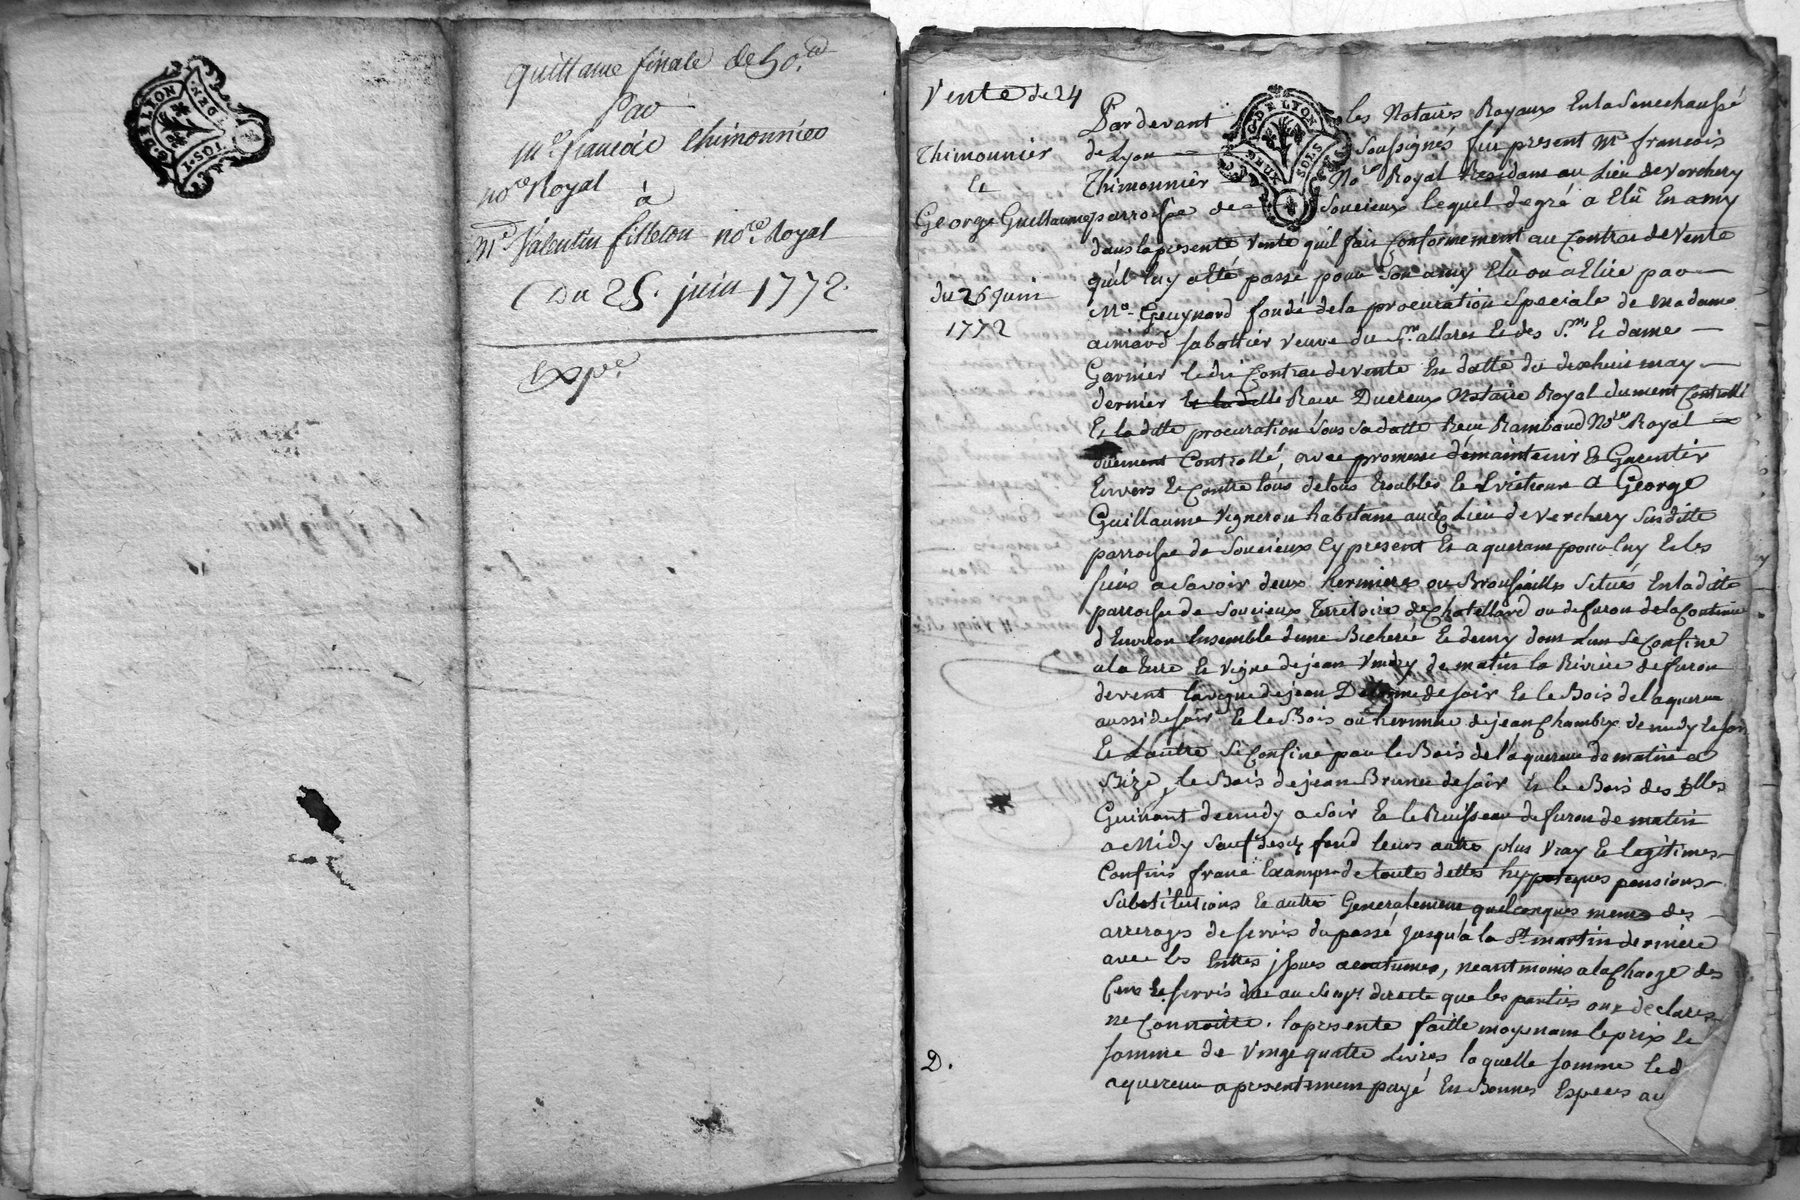 G. DE LYON
DEUX SOLS
quittance finale de 50.#
Par
Me. françois thimonnier
nore. Royal
à
Me. Valentin filleton nore. Royal
Du 25. juin 1772.
Expé.
Vente de 24
Thimonnier
à
George Guillaume
du 26 juin
1772
G. DE LYON
DEUX SOLS
Par devant les Notaires Royaux En la Senechaussé
de Lyon Soussignés fut present Me françois
Thimonnier Nore Royal Residant au Lieu de Verchery
parroisse de Soucieux lequel de gré a Elû En amy
dans la presente Vente qu'il fait Conformement au Contrat de Vente
qu'il luy a été passé pour Son amy Elu ou a Elire par
Me. Guynard fondé de la procuration Speciale de madame
Sabottier Veuve du Sr. allares et des Srs. Et dame
Garnier ledit Contrat de Vente En datte du dixhuit may
dernier Et la ditte Reçu Ducreux Notaire Royal dument Controllé
Et la ditte procuration Sous Sa datte Recu Rambaud Nore Royal
duement Controllé, avec promesse de maintenir Et Garentir
Envers Et Contre tous de tous troubles Et Evictions a George
Guillaume Vigneron habitant audt Lieu de Verchery Susditte
parroisse de Soucieux Cy present Et aquerant pour luy Et les
Siens a Savoir deux hermures ou Broussailles Situés En la ditte
parroisse de Soucieux Territoire de Chatellard ou de furon de la Contenue
d'Environ Ensemble d'une Bicherée Et demy dont L'un Se Confine
a la terre Et Vigne de jean Vindry de matin la Riviere de furon
de vent la vigne de jean Delorme de soir Et le Bois de l'aquereur
aussi de soir Et le Bois ou hermure de jean Chambry de midy Et soir
Et L'autre Se Confine par le Bois de l'aquereur de matin a
Bize, le Bois de jean Brunet de soir Et le Bois des Elles
Guinant de midy a soir Et le Ruisseau de furon de matin
a Midy Sauf desdt fond leurs autre plus Vray Et legitimes
Confins franc Exampt de toutes dettes hypoteques pensions
Substitutions Et autres Generalement quelconques meme des
arrerages de servis du passé jusqu'à la St martin derniere
avec les Entrés issues acoutumes, neantmoins a la Charge des
Cens Et servis due au Seigr directe que les parties ont declarés
ne Connoitre. la presente faitte moyenant le prix Et
somme de Vingt quatre Livres, la quelle somme led
aquereur a presentement payé En Bonnes Especes au
D.